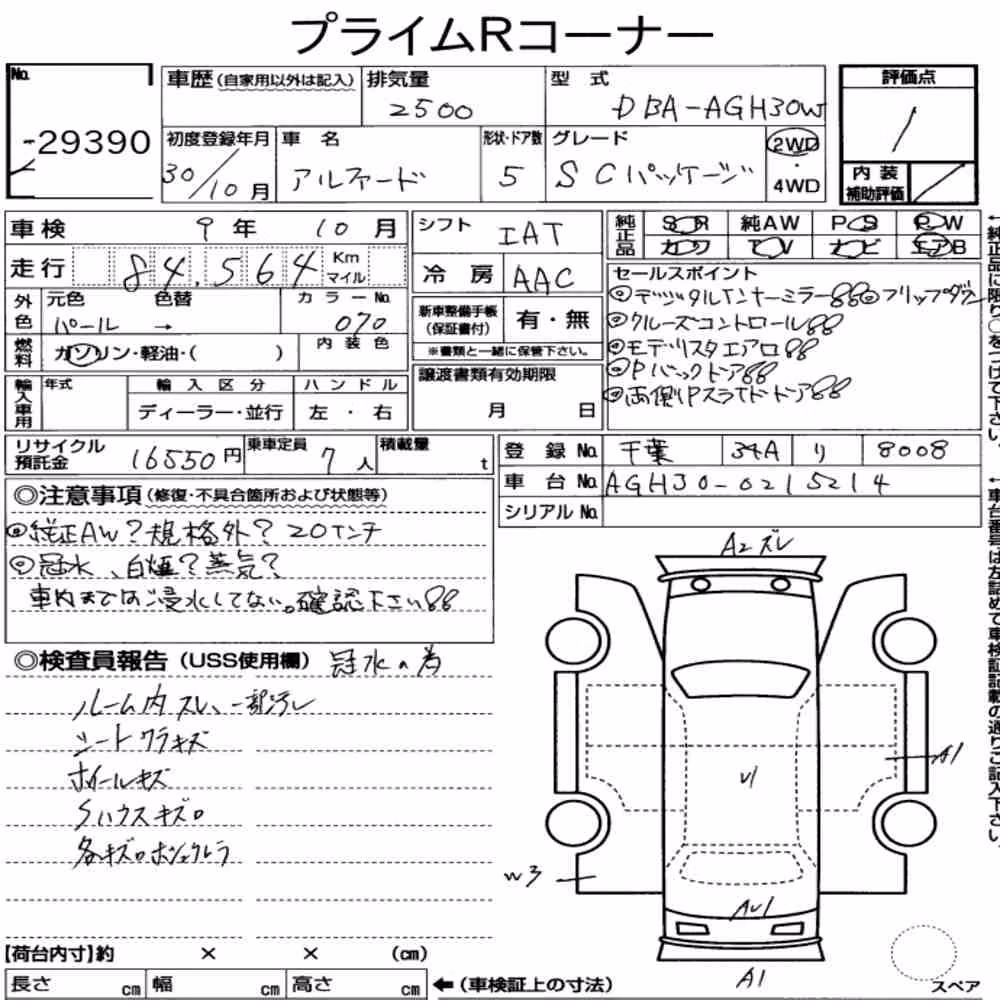 プライムRコーナー
No.
-29390
車歴(自家用以外は記入)
排気量
2500
型 式
DBA-AGH30W
評価点
初度登録年月
30/10月
車 名
アルファード
形状・ドア数
5
グレード
SCパッケージ
2WD
・
4WD
内装
補助評価
車検
9年 10月
シフト
IAT
純正品
SR 純AW PS PW
カワ TV ナビ エアB
走行
84,564
Km
マイル
冷 房
AAC
外色
元色 色替
パール →
カラーNo.
070
新車整備手帳
(保証書付)
有・無
※書類と一緒に保管下さい。
セールスポイント
◎デジタルインナーミラー
◎フリップダウン
◎クルーズコントロール
◎モデリスタエアロ
◎Pバックドア
◎両側Pスライドドア
燃料
ガソリン・軽油・( )
内装色
輸入車用
年式
輸入区分
ディーラー・並行
ハンドル
左 ・ 右
譲渡書類有効期限
月 日
リサイクル
預託金
16550円
乗車定員
7人
積載量
t
登 録 No.
千葉 34A り 8008
車 台 No.
AGH30-0215214
シリアルNo.
◎注意事項(修復・不具合箇所および状態等)
◎純正AW?規格外?20インチ
◎冠水、白煙?蒸気?
車内までは浸水してない。確認下さい
◎検査員報告(USS使用欄) 冠水の為
ルーム内スレ、一部汚レ
シートワラキズ
ホイールキズ
【荷台内寸】約 × × (cm)
長さ cm
幅 cm
高さ cm
←(車検証上の寸法)
A2ズレ
A1
W3
A1
スペア
←純正品に限り○をつけて下さい。
←車台番号は左詰めで車検証記載の通りご記入下さい。